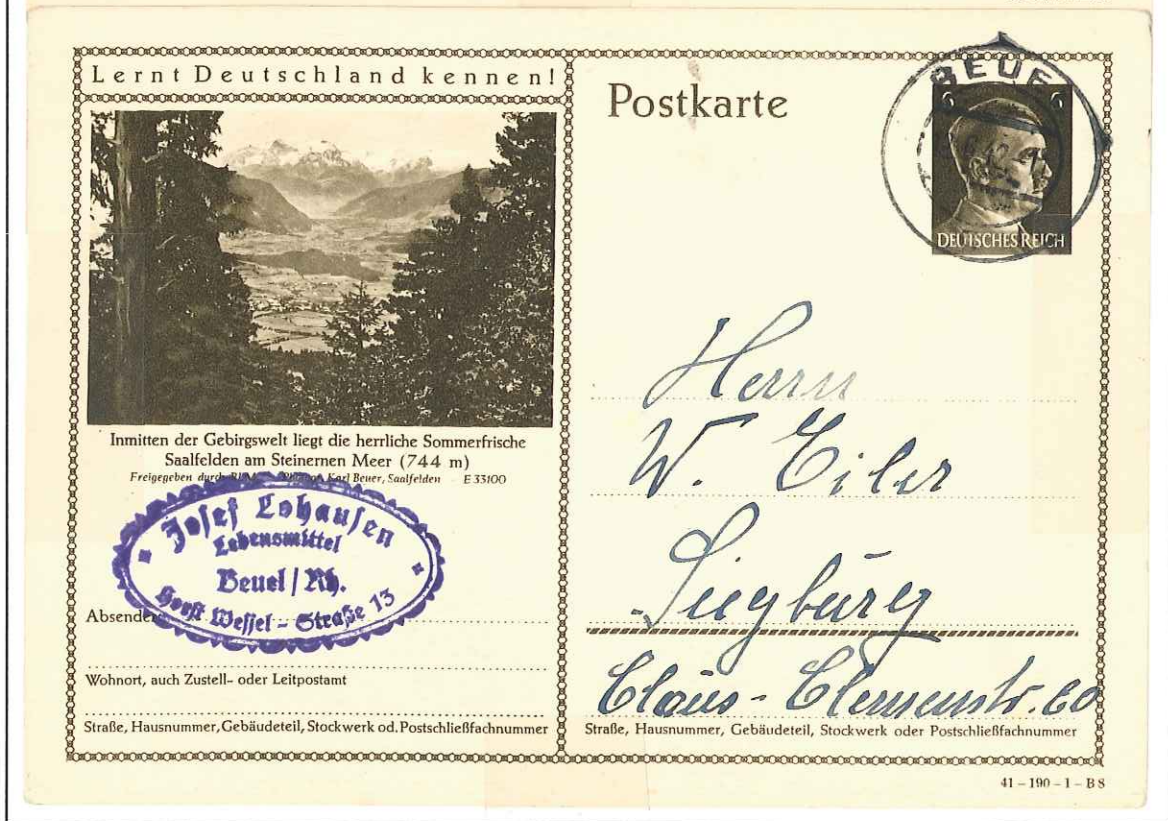 Lernt Deutschland kennen!
Inmitten der Gebirgswelt liegt die herrliche Sommerfrische
Saalfelden am Steinernen Meer (744 m)
Freigegeben durch Karl Beuer, Saalfelden E 33100
Josef Lohausen
Lebensmittel
Beuel / Rh.
Horst Wessel - Straße 13
Absender
Wohnort, auch Zustell- oder Leitpostamt
Straße, Hausnummer, Gebäudeteil, Stockwerk od. Postschließfachnummer
Postkarte
BEUEL
6 6
DEUTSCHES REICH
Herrn
W. Eiler
Siegburg
Claus-Clemenstr. 60
Straße, Hausnummer, Gebäudeteil, Stockwerk oder Postschließfachnummer
41 – 190 – 1 – B 8